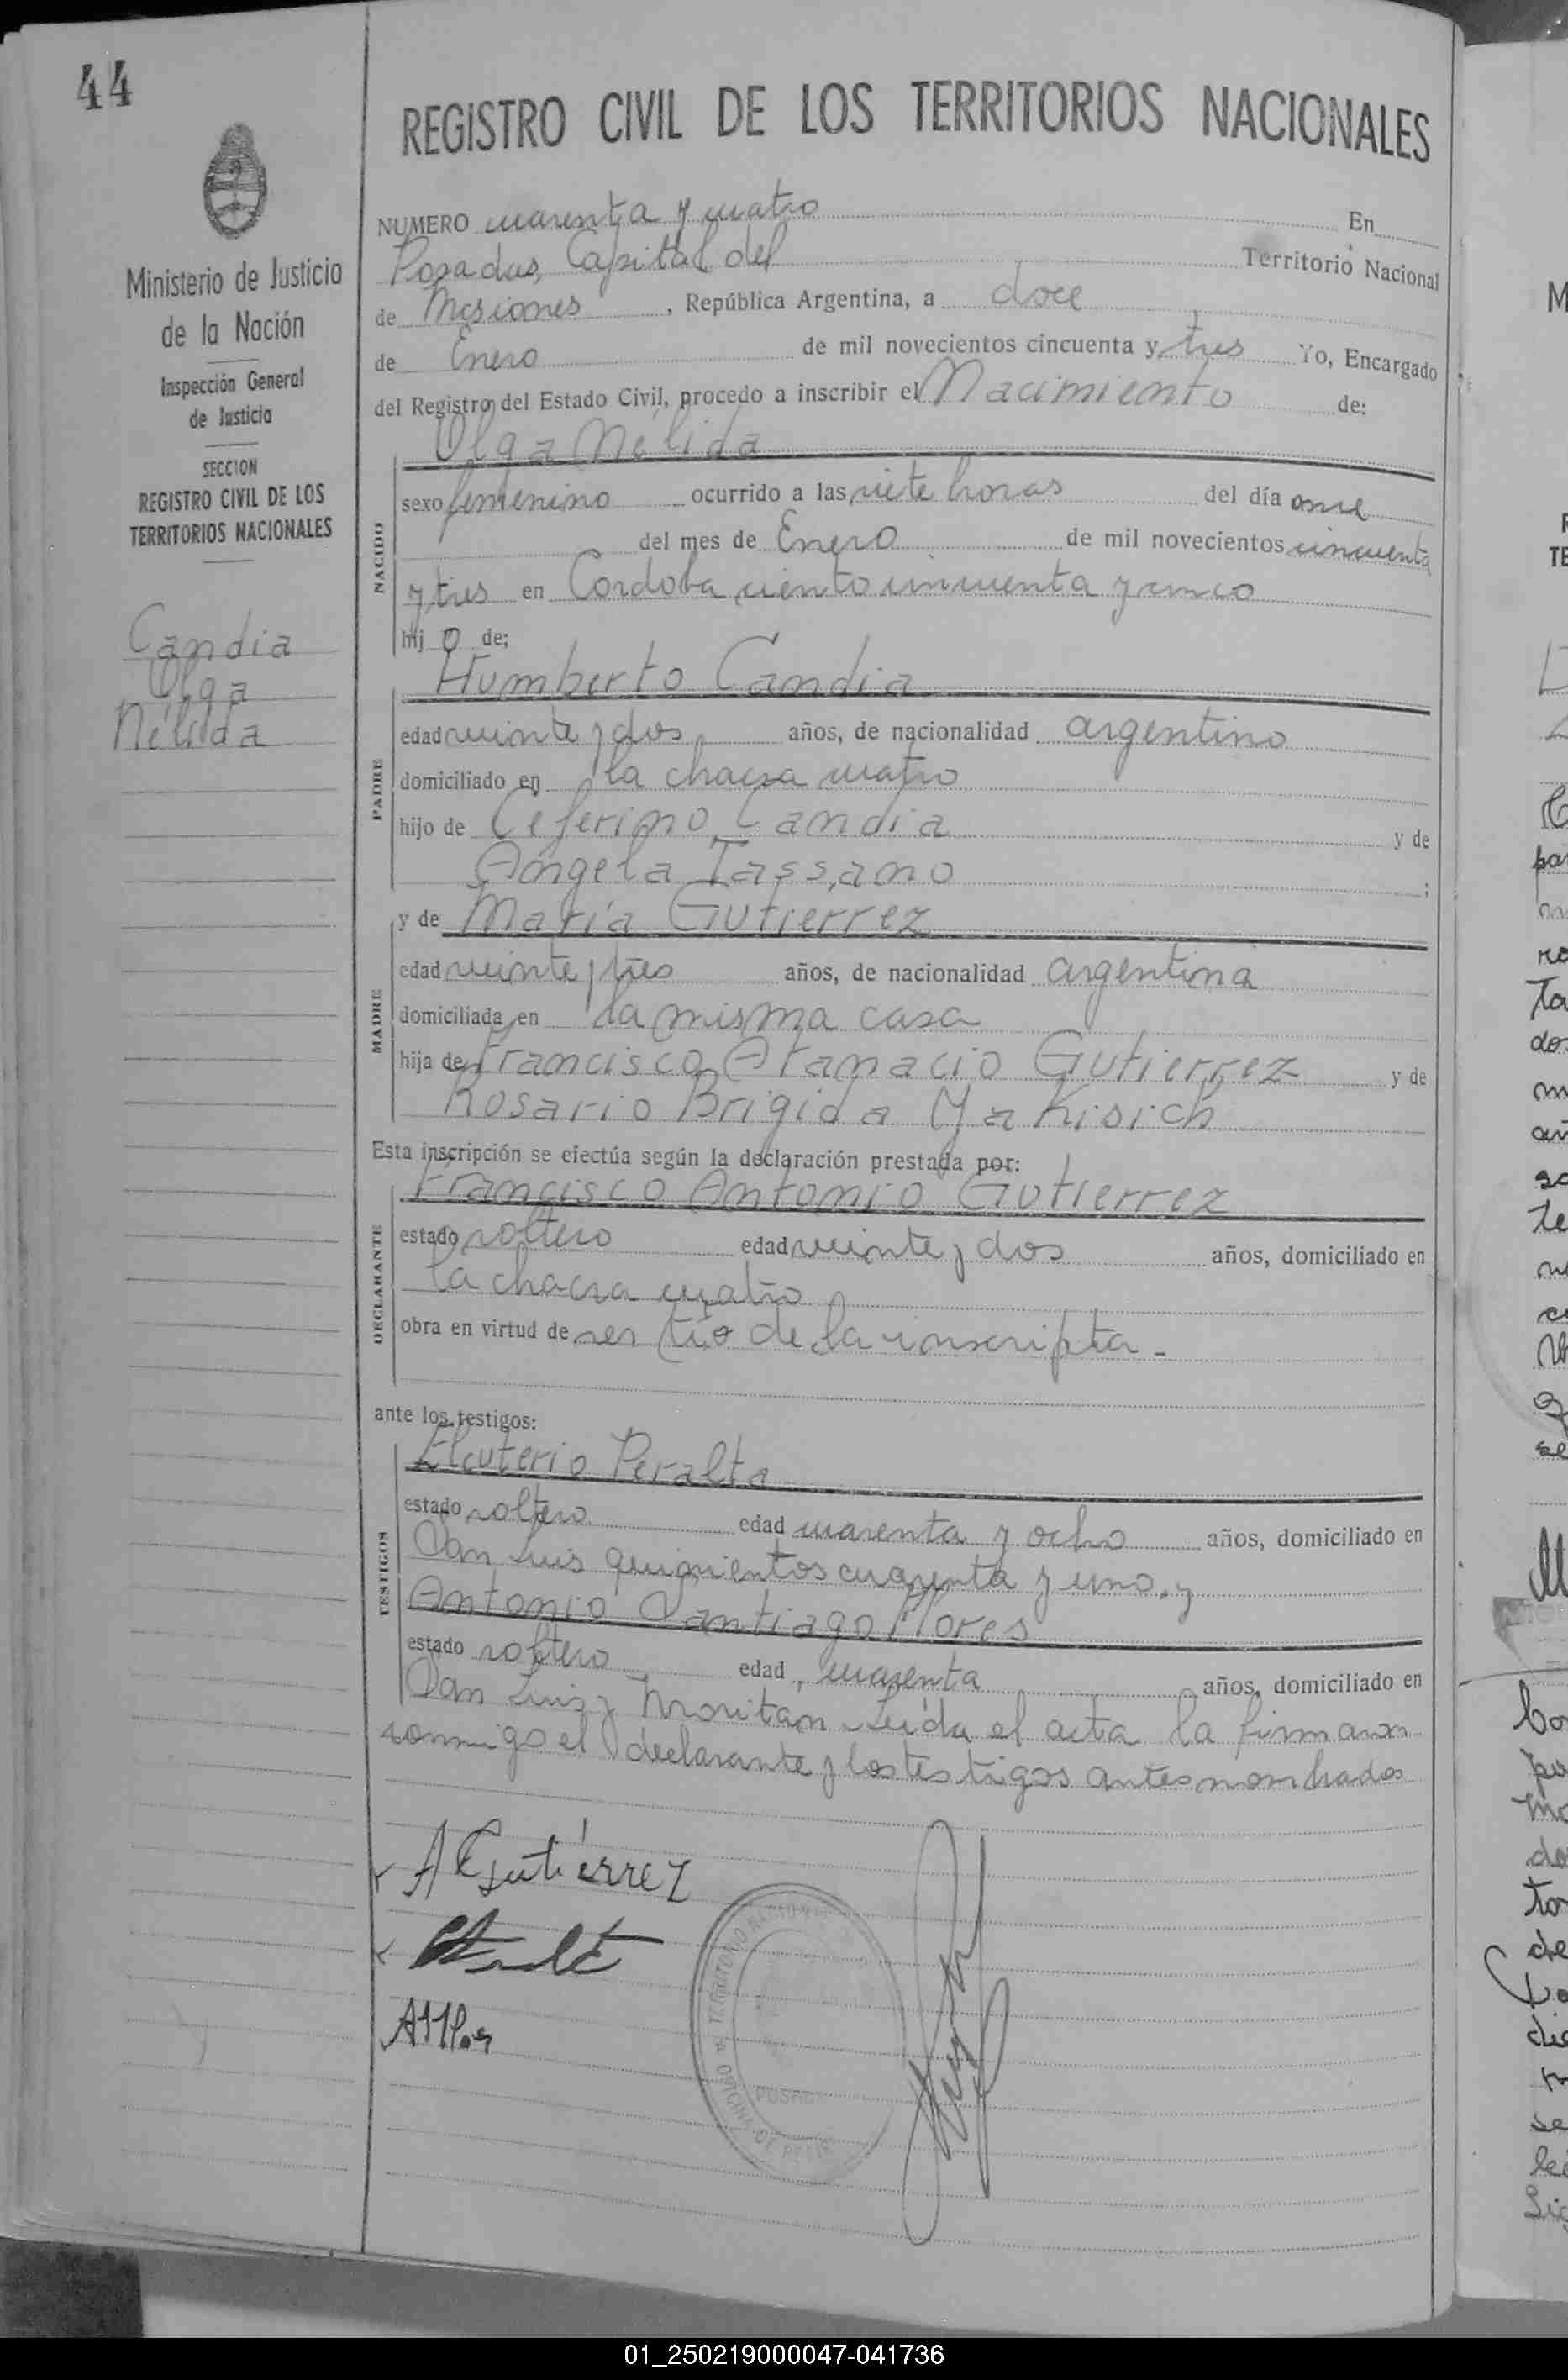 44
REGISTRO CIVIL DE LOS TERRITORIOS NACIONALES
Ministerio de Justicia
de la Nación
Inspección General
de Justicia
SECCION
REGISTRO CIVIL DE LOS
TERRITORIOS NACIONALES
Candia
Olga
Nélida
NUMERO cuarenta y cuatro En
Posadas, Capital del Territorio Nacional
de Misiones, República Argentina, a doce
de Enero de mil novecientos cincuenta y tres Yo, Encargado
del Registro del Estado Civil, procedo a inscribir el Nacimiento de:
NACIDO
Olga Nélida
sexo femenino ocurrido a las siete horas del día once
del mes de Enero de mil novecientos cincuenta
y tres en Cordoba ciento cincuenta y cinco
hij o de;
PADRE
Humberto Candia
edad veinte y dos años, de nacionalidad argentino
domiciliado en la chacra cuatro
hijo de Ceferino Candia y de
Angela Tassano ;
MADRE
y de María Gutierrez
edad veinte y tres años, de nacionalidad argentina
domiciliada en la misma casa
hija de Francisco Atanacio Gutierrez y de
Rosario Brigida Yakisich
Esta inscripción se efectúa según la declaración prestada por:
DECLARANTE
Francisco Antonio Gutierrez
estado soltero edad veinte y dos años, domiciliado en
la chacra cuatro
obra en virtud de ser tío de la inscripta -
ante los testigos:
TESTIGOS
Eleuterio Peralta
estado soltero edad cuarenta y ocho años, domiciliado en
San Luis quinientos cuarenta y uno, y
Antonio Santiago Flores
estado soltero edad cuarenta años, domiciliado en
San Luis y Leída el acta la firman
conmigo el declarante y los testigos antes nombrados
A Gutiérrez
TERRITORIO NACIONAL
OFICINA DE
POSADAS
01_250219000047-041736